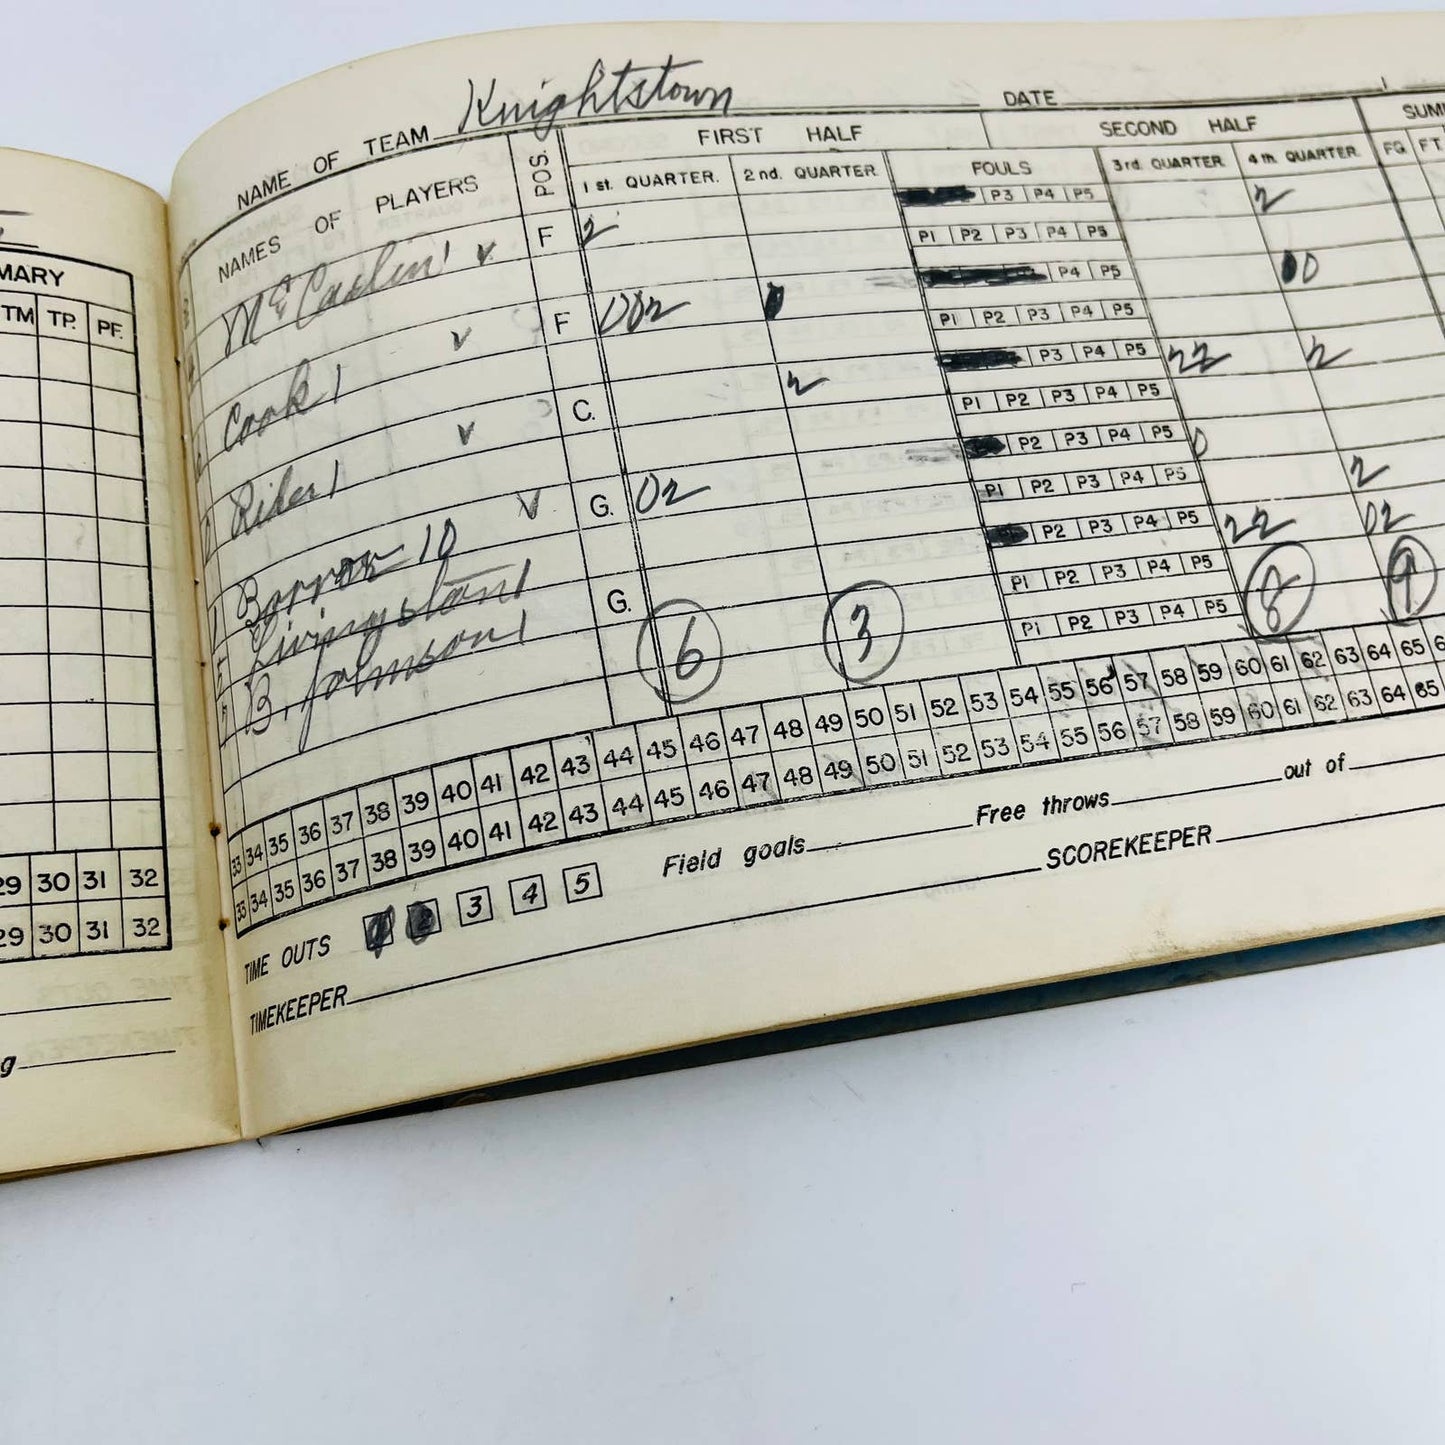 MARY
TM TP. PF.
29 30 31 32
29 30 31 32
g
NAME OF TEAM Knightstown DATE
NAMES OF PLAYERS POS. FIRST HALF SECOND HALF SUM
1 st. QUARTER. 2 nd. QUARTER FOULS 3rd QUARTER 4 th. QUARTER. FG. FT.
McCaslin F 2 P3 P4 P5 2
P1 P2 P3 P4 P5
Cook F 002 P4 P5 0
P1 P2 P3 P4 P5
Rider C. 2 P3 P4 P5 22 2
P1 P2 P3 P4 P5
Borror 10 G. 02 P2 P3 P4 P5 0
P1 P2 P3 P4 P5 2
Livingston G. P2 P3 P4 P5 22 02
B. Johnson P1 P2 P3 P4 P5
6 3 P1 P2 P3 P4 P5 8 9
33 34 35 36 37 38 39 40 41 42 43 44 45 46 47 48 49 50 51 52 53 54 55 56 57 58 59 60 61 62 63 64 65
33 34 35 36 37 38 39 40 41 42 43 44 45 46 47 48 49 50 51 52 53 54 55 56 57 58 59 60 61 62 63 64 65
TIME OUTS 3 4 5 Field goals Free throws out of
TIMEKEEPER SCOREKEEPER